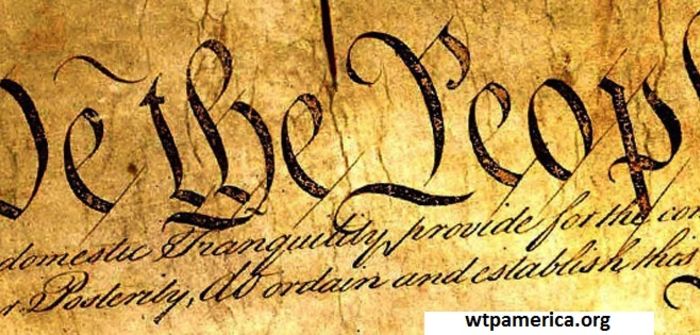 We the Peopl
domestic Tranquility, provide for the co
r Posterity, do ordain and establish this
wtpamerica.org